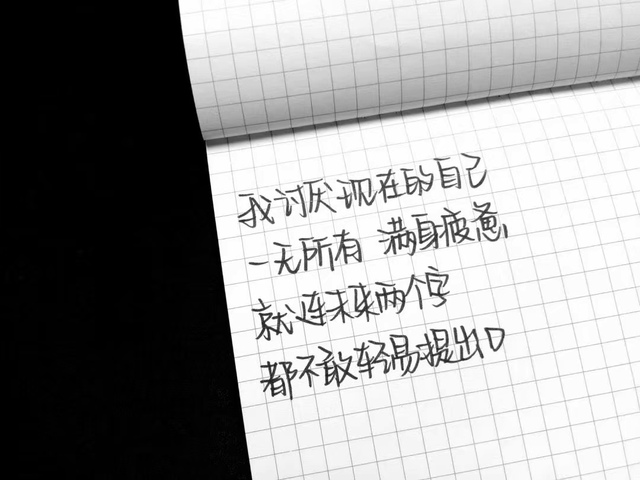 我讨厌现在的自己
一无所有 满身疲惫
就连未来两个字
都不敢轻易提出口